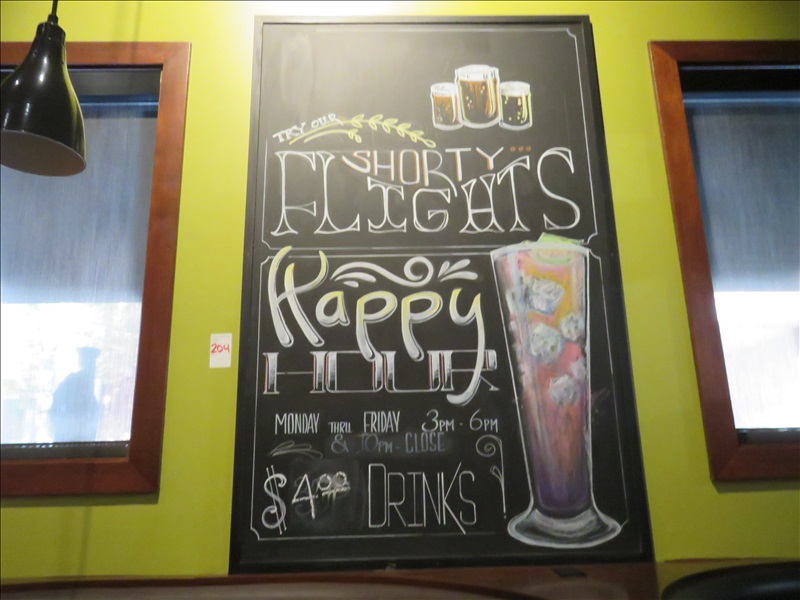 TRY OUR
SHORTY...
FLIGHTS
Happy
HOUR
MONDAY THRU FRIDAY 3PM - 6PM
& 10PM - CLOSE
$4.00 DRINKS
204